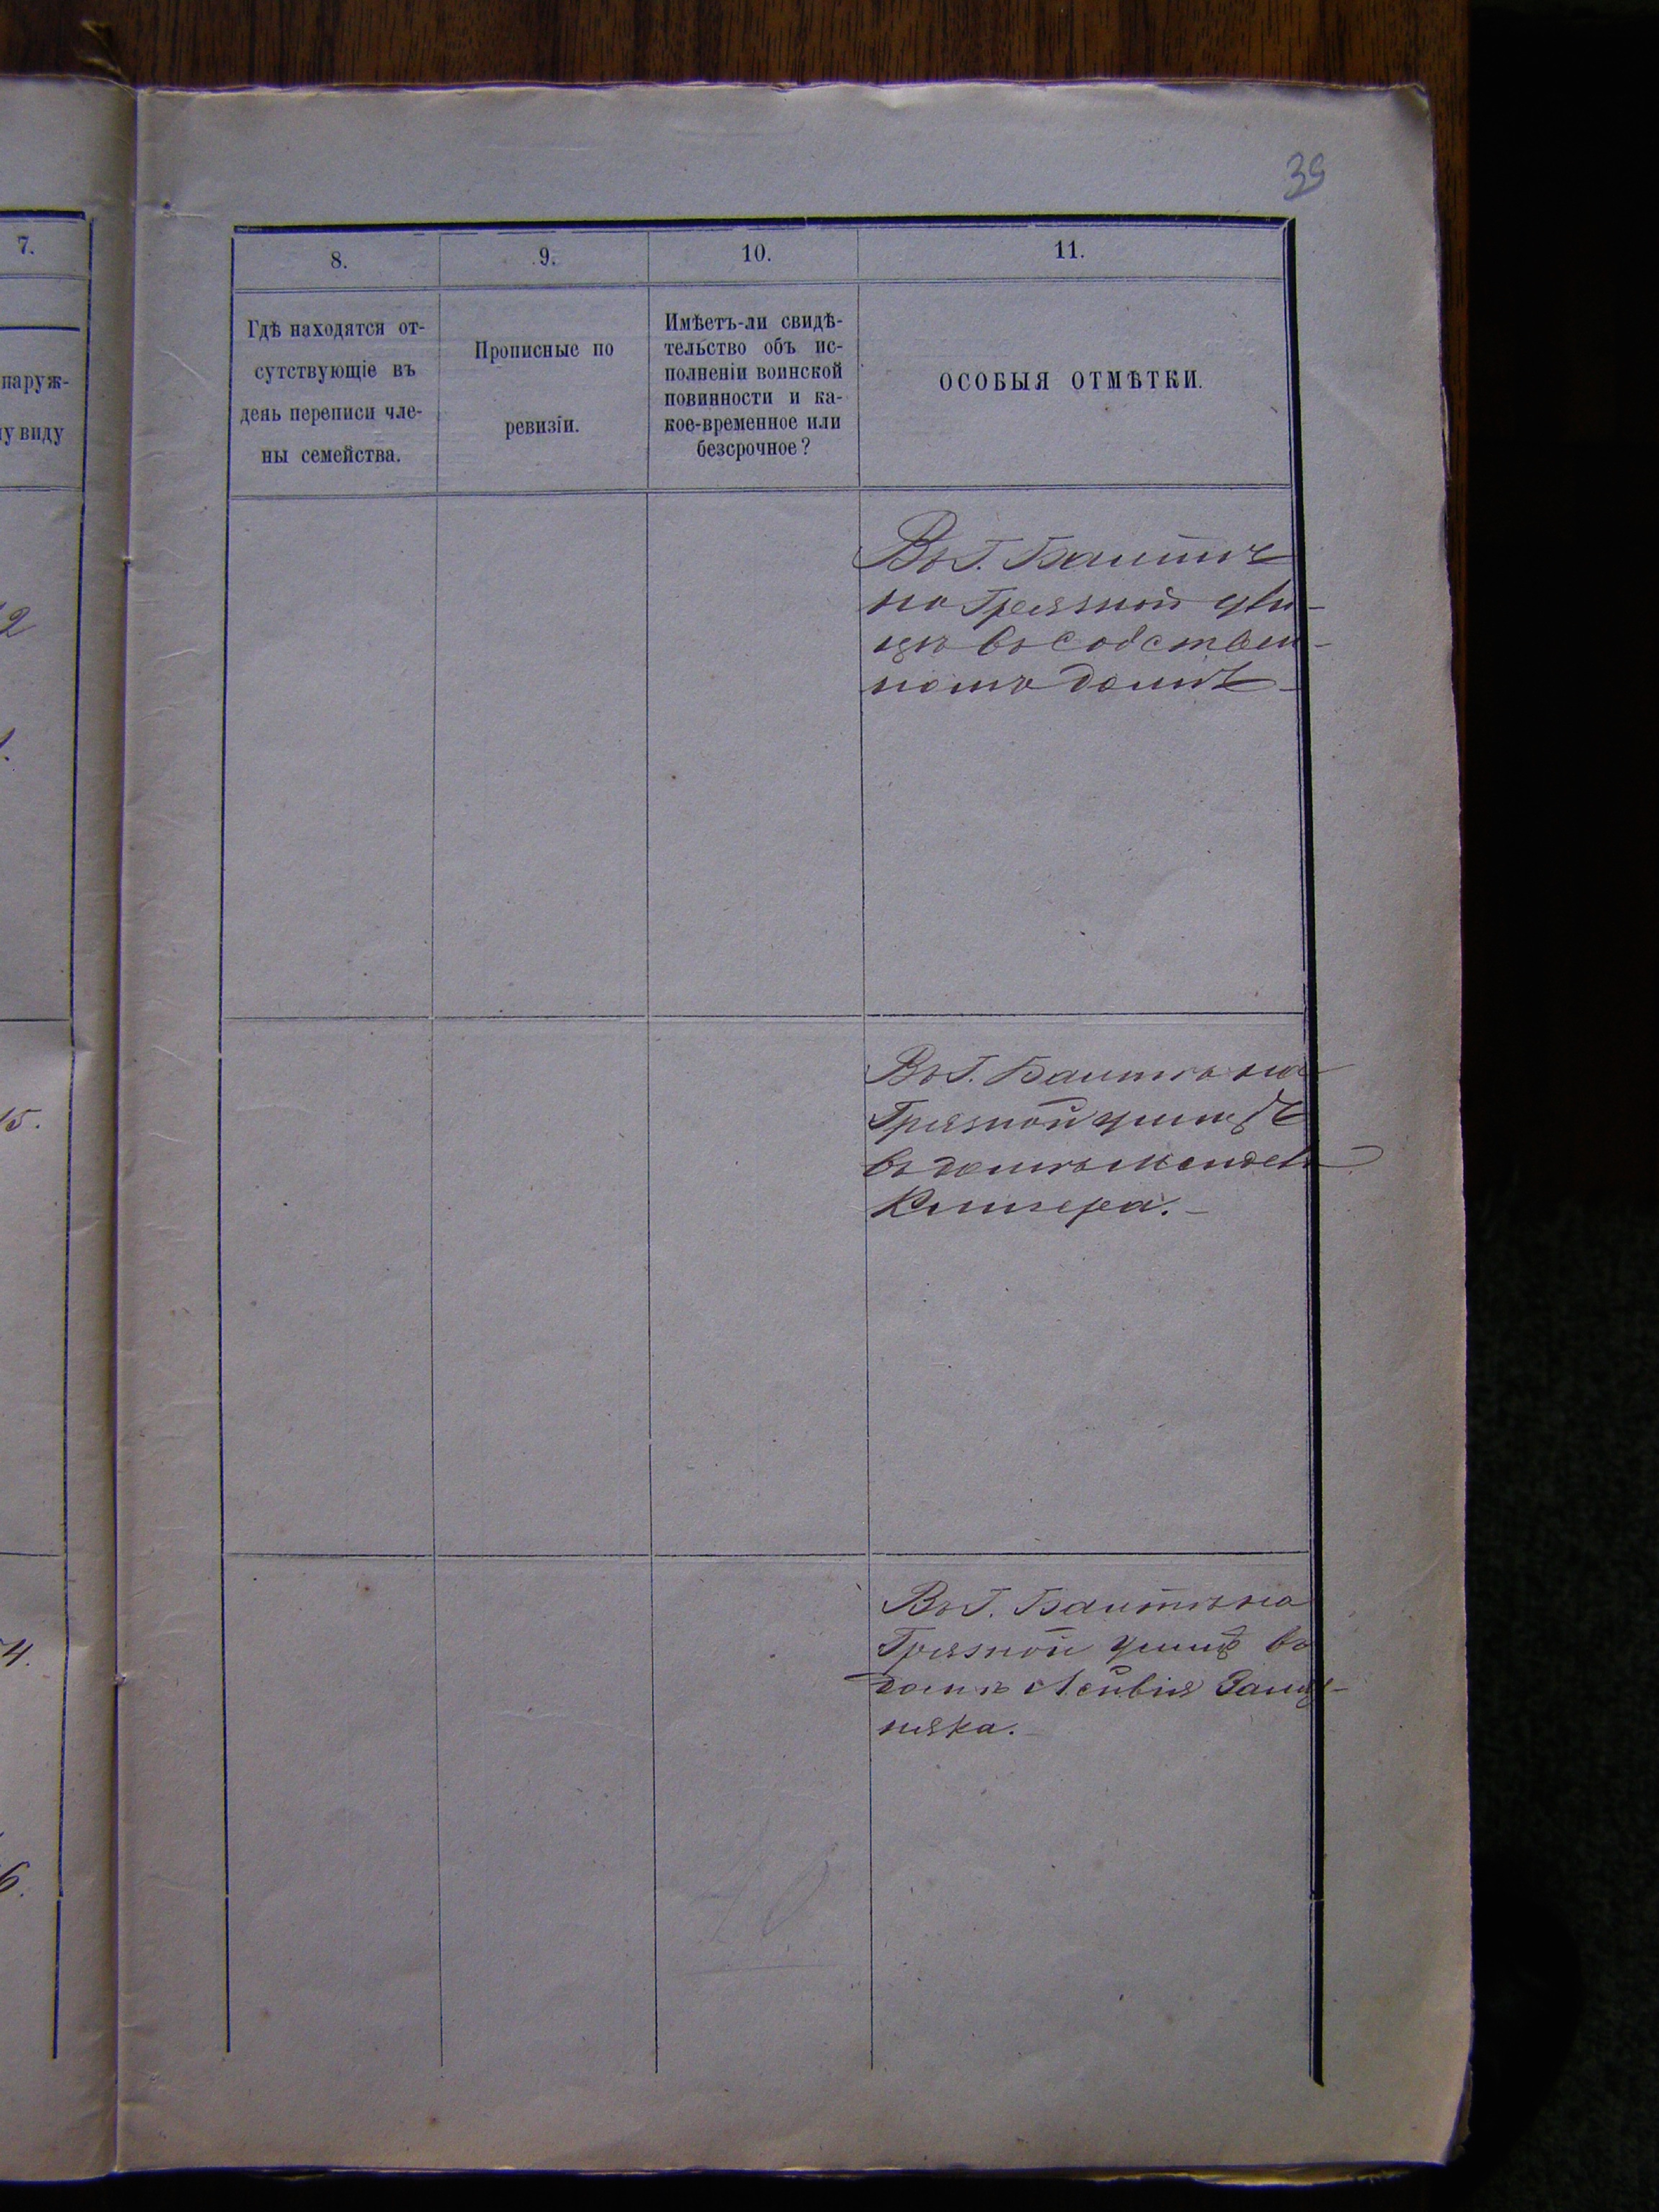 39
7.
8.
9.
10.
11.
наруж-
у виду
Гдѣ находятся от-
сутствующіе въ
день переписи чле-
ны семейства.
Прописные по
ревизіи.
Имѣетъ-ли свидѣ-
тельство объ ис-
полненіи воинской
повинности и ка-
кое-временное или
безсрочное?
ОСОБЫЯ ОТМѢТКИ.
Въ Г. Балтѣ
на Грязной ули-
цѣ въ собствен-
номъ домѣ
2
Въ Г. Балтѣ на
Грязной улицѣ
въ домѣ Менделя
15.
Въ Г. Балтѣ на
Грязной улицѣ въ
домѣ Лейвія
няка.
4.
6.